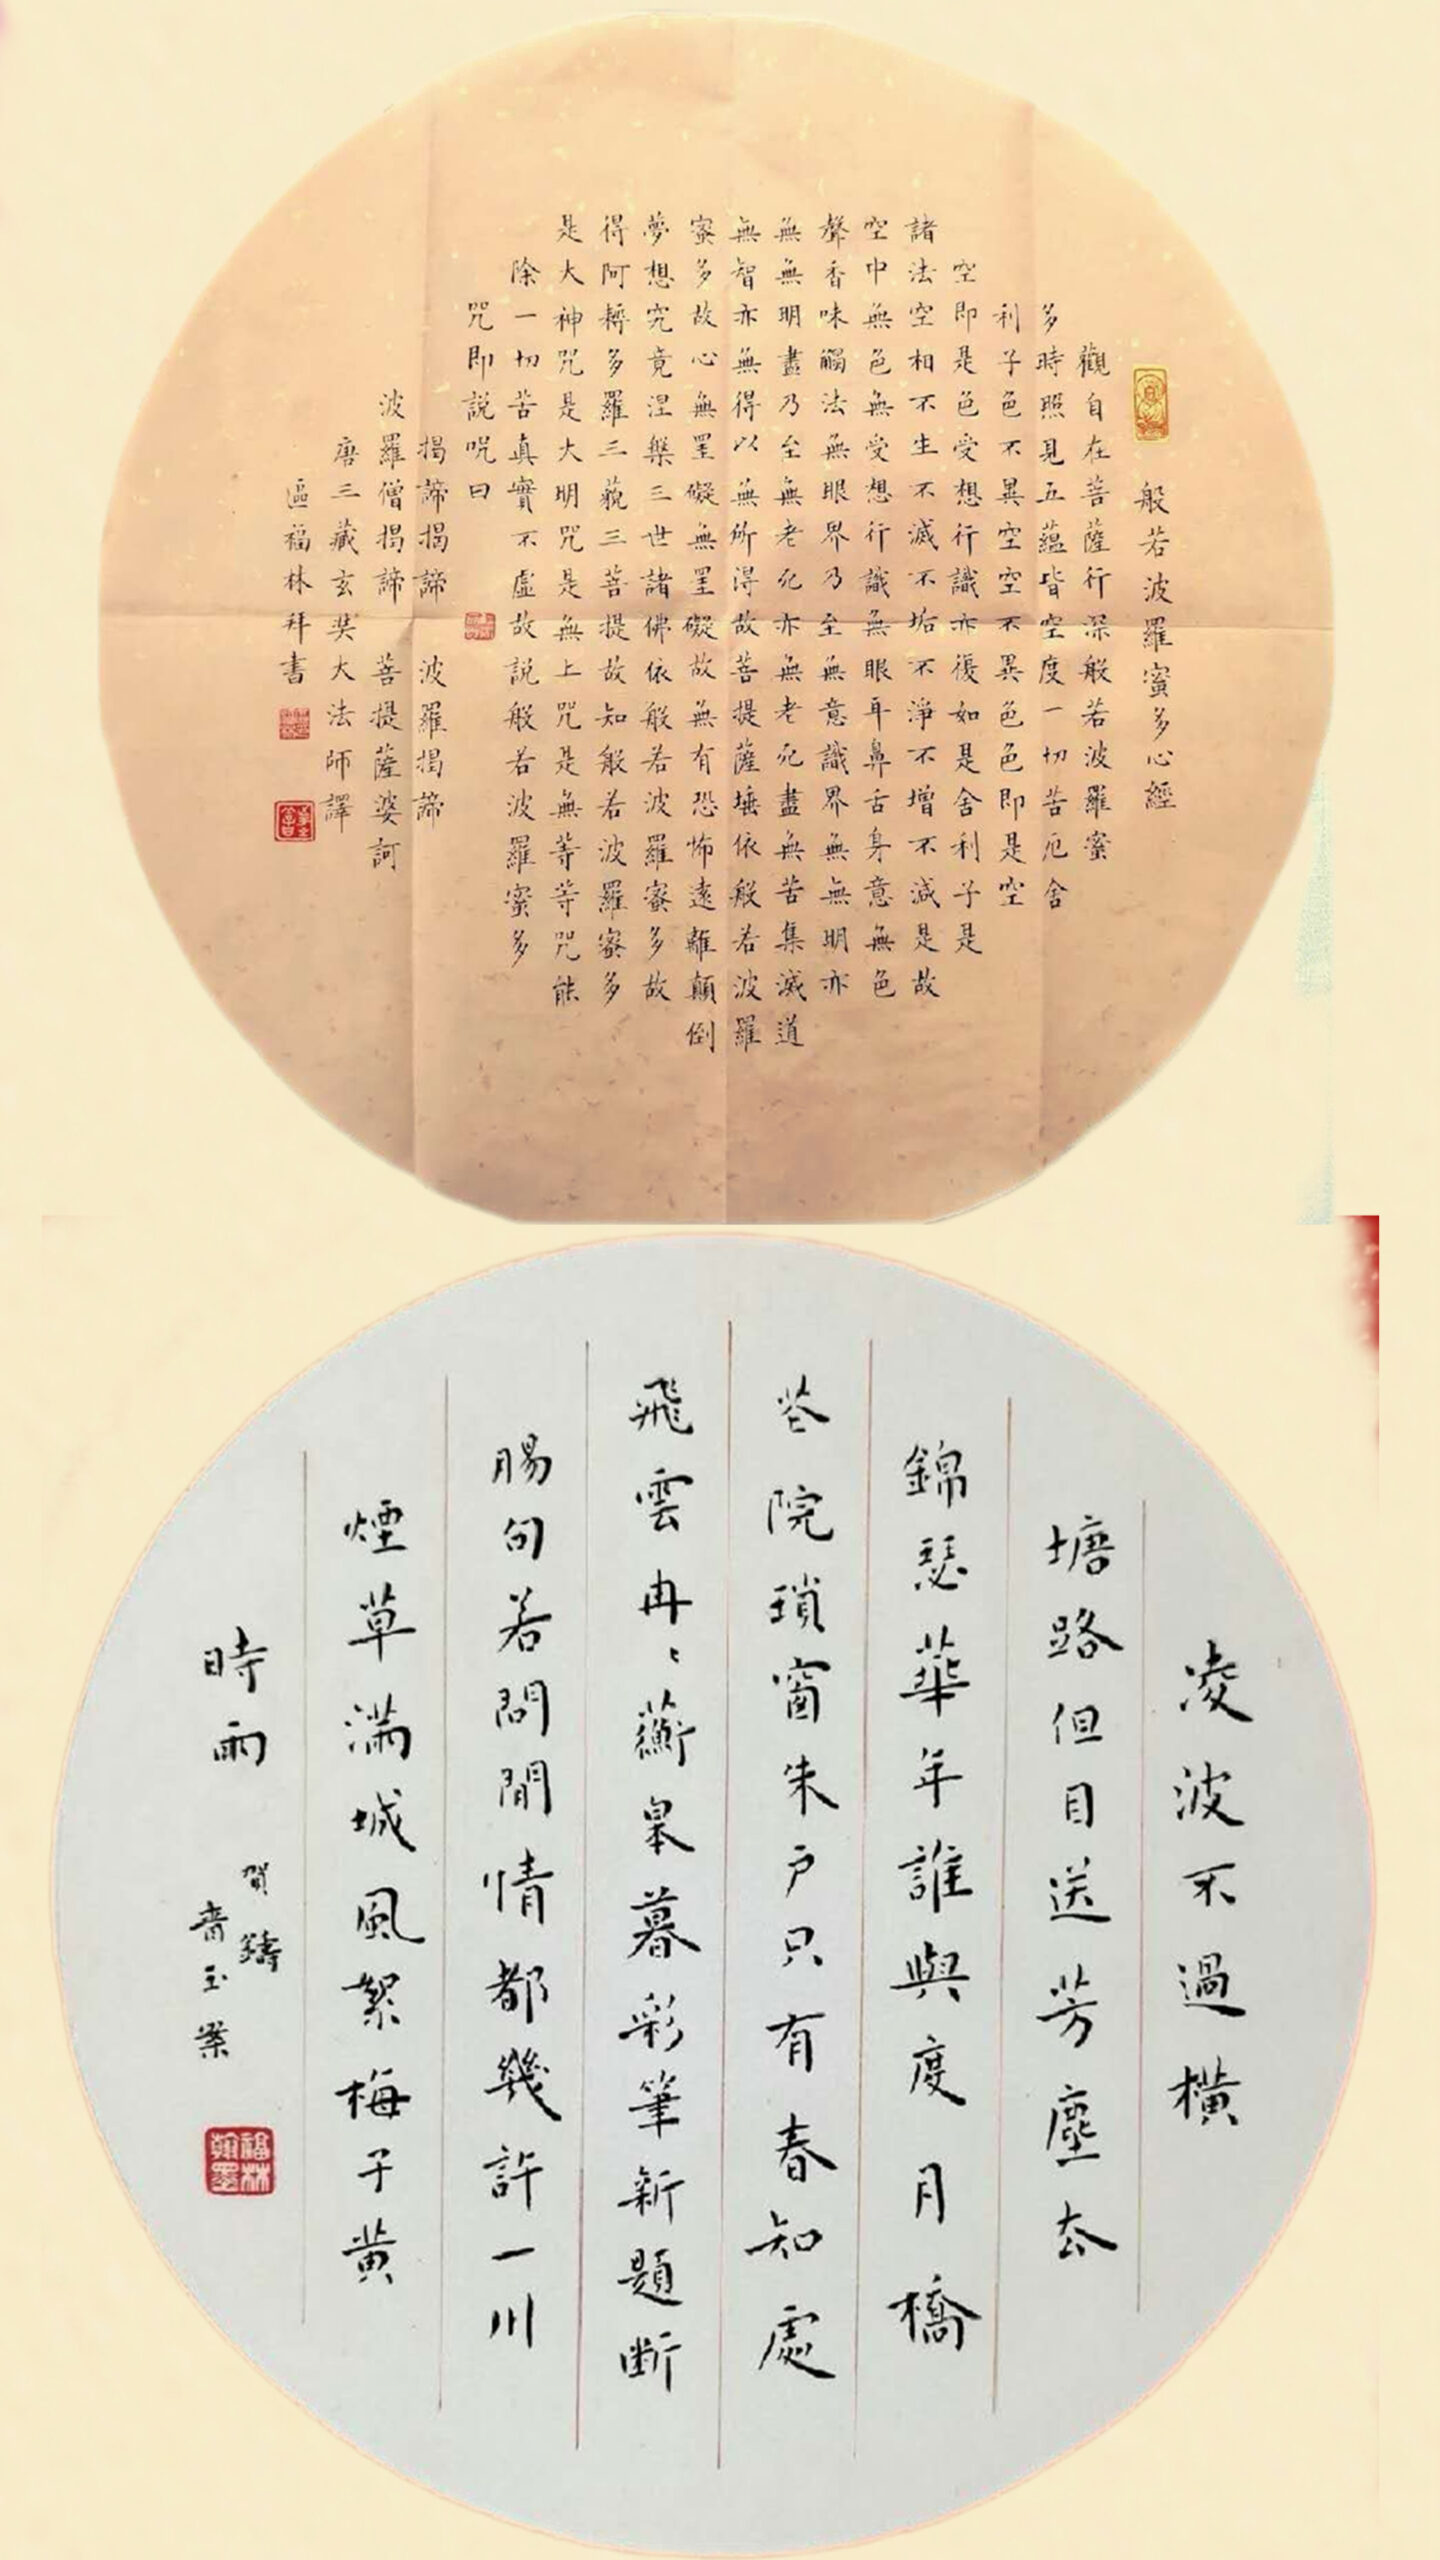 般若波羅蜜多心經
觀自在菩薩行深般若波羅蜜
多時照見五蘊皆空度一切苦厄舍
利子色不異空空不異色色即是空
空即是色受想行識亦復如是舍利子是
諸法空相不生不滅不垢不淨不增不減是故
空中無色無受想行識無眼耳鼻舌身意無色
聲香味觸法無眼界乃至無意識界無無明亦
無無明盡乃至無老死亦無老死盡無苦集滅道
無智亦無得以無所得故菩提薩埵依般若波羅
蜜多故心無罣礙無罣礙故無有恐怖遠離顛倒
夢想究竟涅槃三世諸佛依般若波羅蜜多故
得阿耨多羅三藐三菩提故知般若波羅蜜多
是大神咒是大明咒是無上咒是無等等咒能
除一切苦真實不虛故說般若波羅蜜多
咒即說咒曰
揭諦揭諦 波羅揭諦
波羅僧揭諦 菩提薩婆訶
唐三藏玄奘大法師譯
區福林拜書
凌波不過橫
塘路但目送芳塵去
錦瑟華年誰與度月橋
花院瑣窗朱戶只有春知處
飛雲冉〻蘅皋暮彩筆新題断
腸句若問閒情都幾許一川
煙草滿城風絮梅子黃
時雨
賀鑄
青玉案
福林翰墨